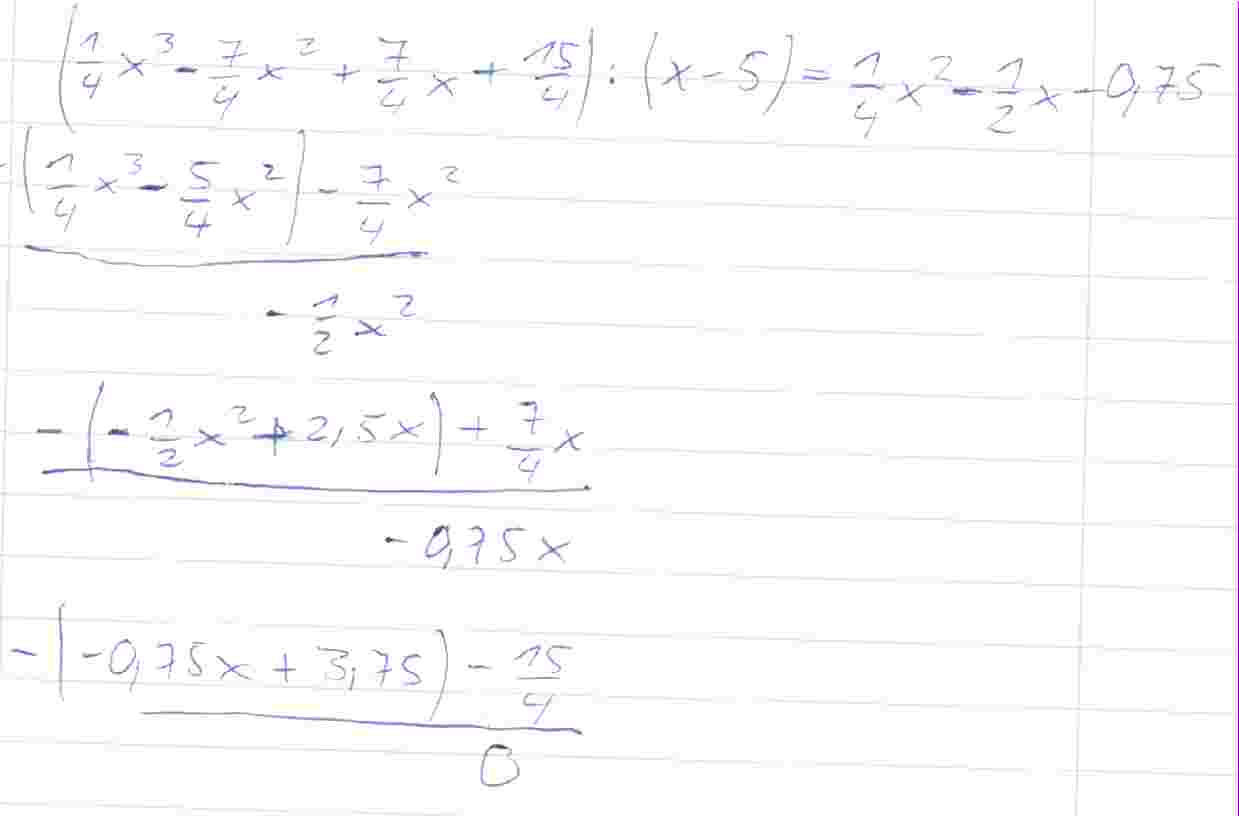 (1/4 x³ - 7/4 x² + 7/4 x + 15/4) : (x - 5) = 1/4 x² - 1/2 x - 0,75
-(1/4 x³ - 5/4 x²) - 7/4 x²
- 1/2 x²
-(- 1/2 x² + 2,5x) + 7/4 x
- 0,75x
-(-0,75x + 3,75) - 15/4
0